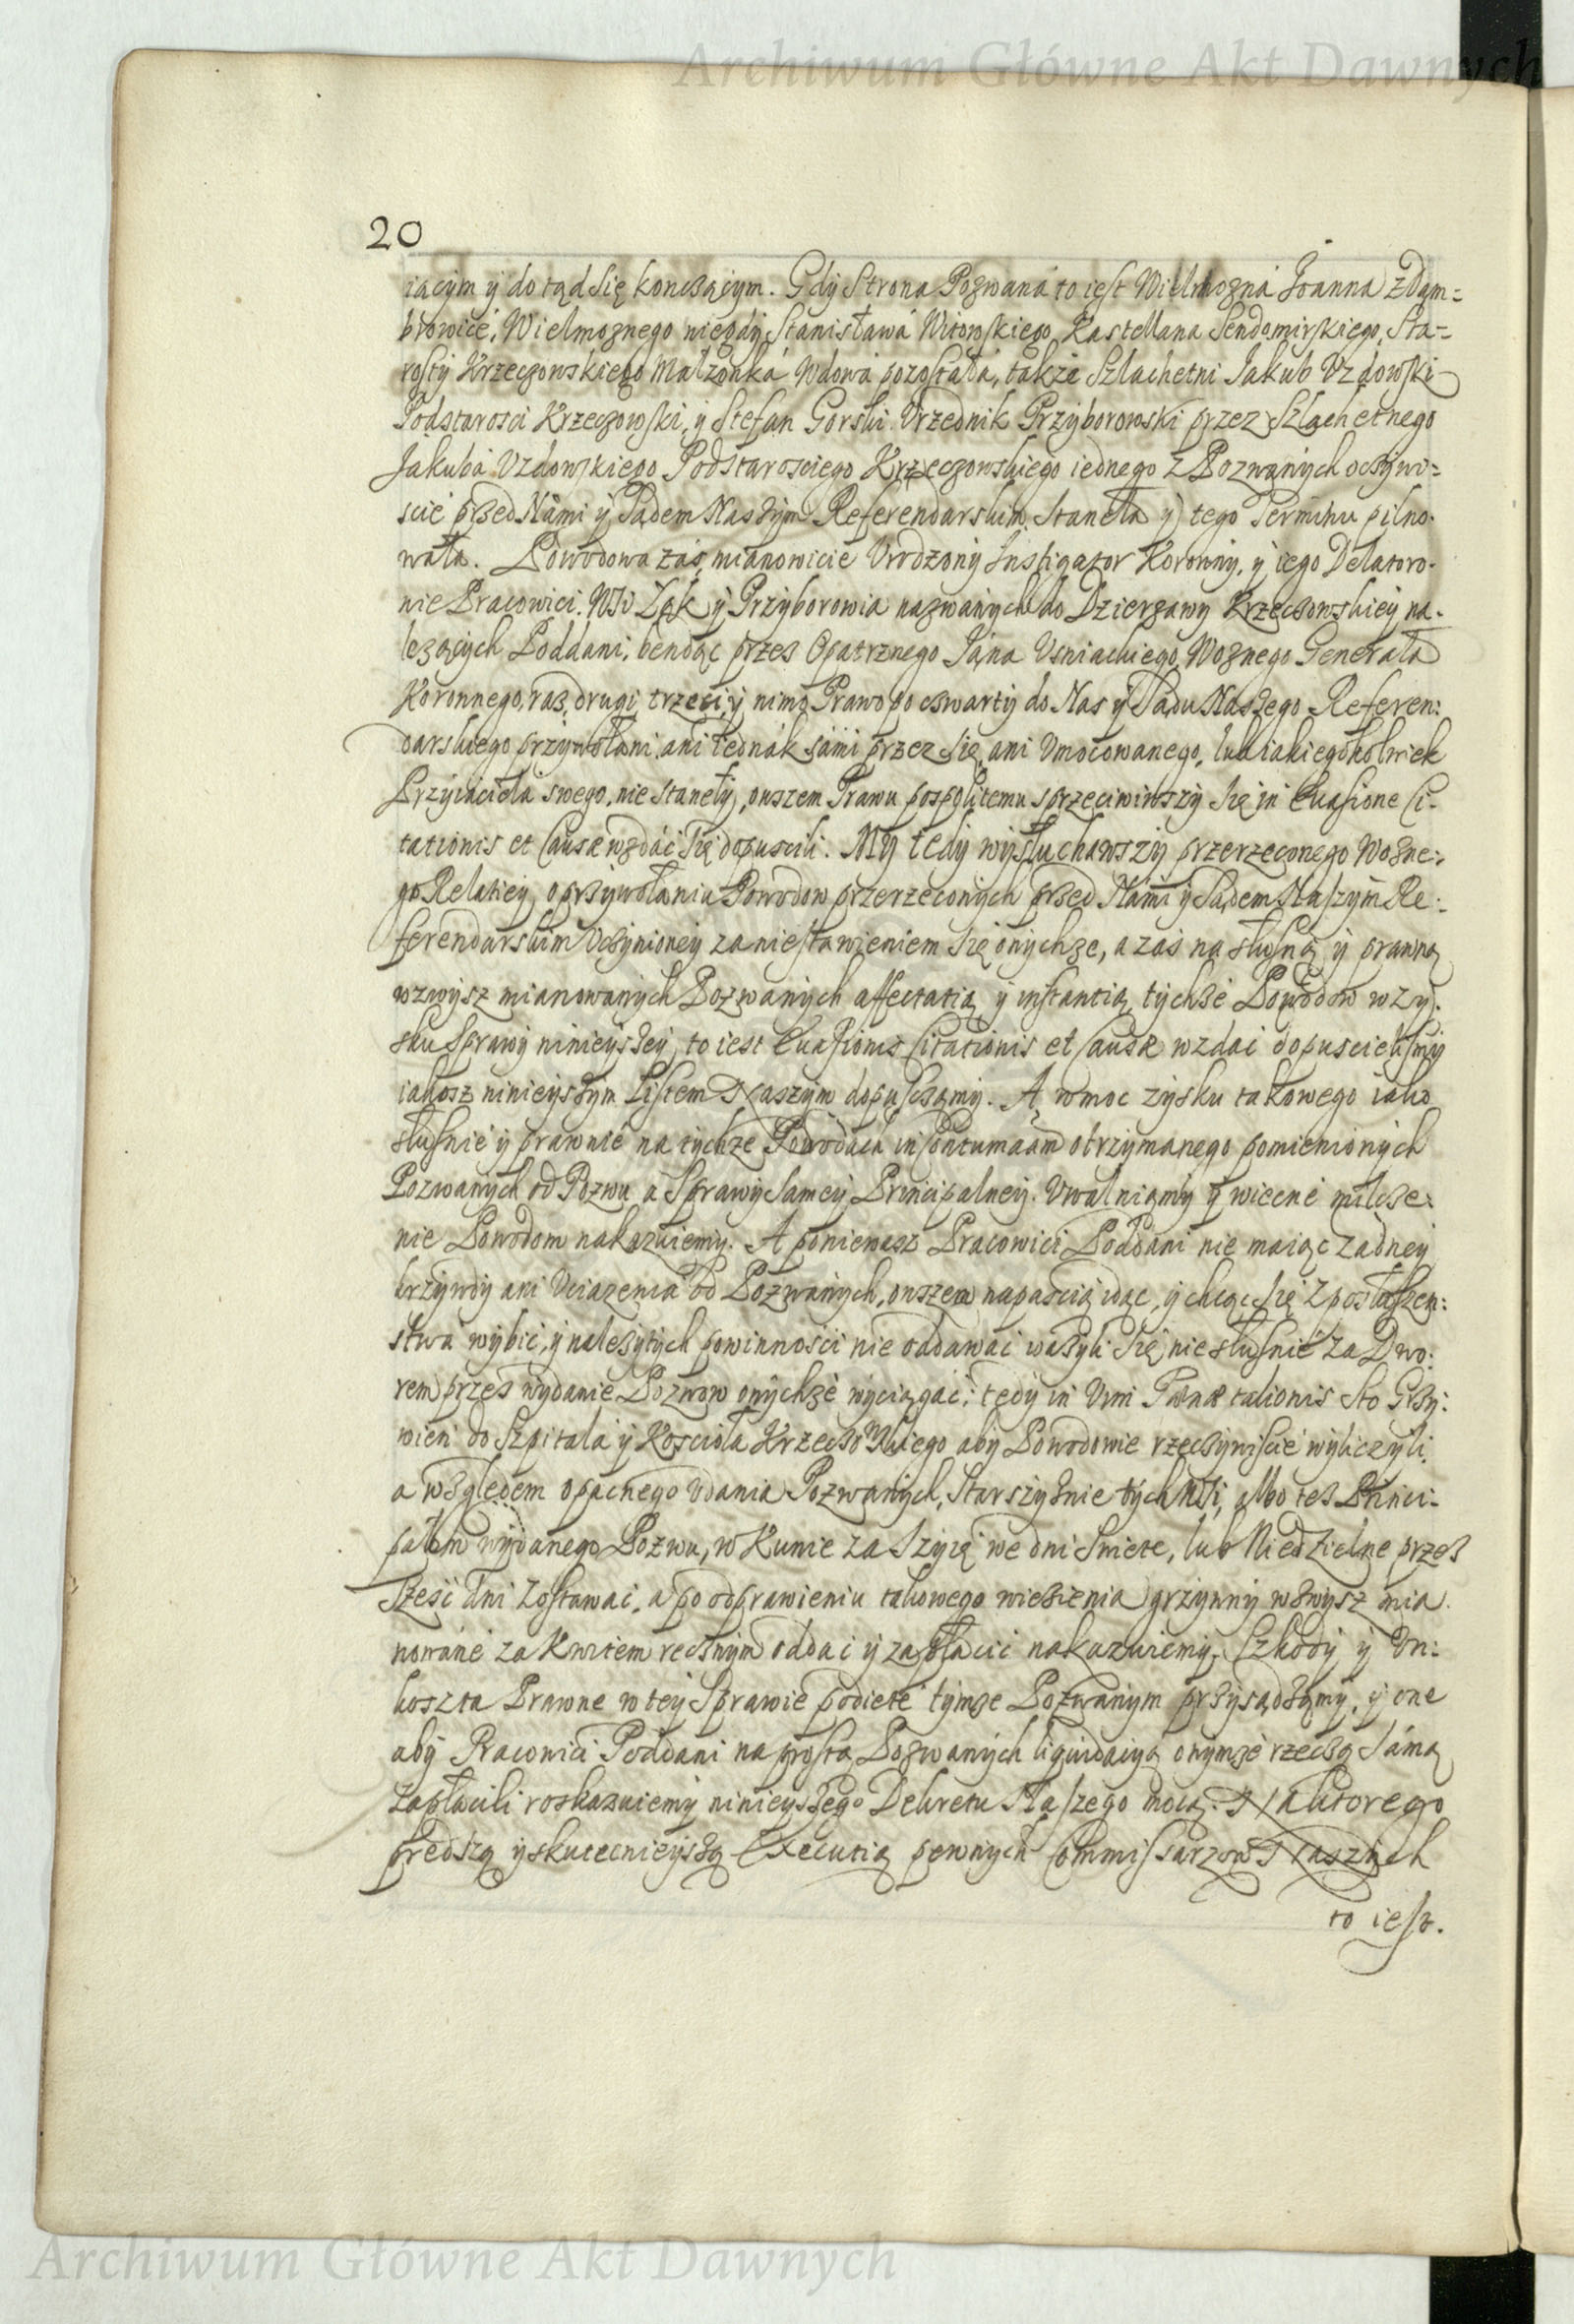 Archiwum Główne Akt Dawnych
20
iącym y do tąd się konczącym. Gdy Strona Pozwana to iest Wielmozna Joanna z Dąm=
browice, Wielmoznego niegdy Stanisława Witowskiego Kastellana Sendomirskiego, Sta=
rosty Krzeczowskiego Małzonka Wdowa pozostała, także Szlachetni Jakub Uzdowski
Podstarosci Krzeczowski, y Stefan Gorski Urzednik Przyborowski przez Szlachetnego
Jakuba Uzdowskiego Podstarosciego Krzeczowskiego iednego z Pozwanych oczywi=
scie przed Nami y Sądem Naszym Referendarskim Staneła y tego Terminu pilno-
wała. Powodowa zaś, mianowicie Urodzony Instigator Koronny, y iego Delatoro-
nie Pracowici Wsi Ząk y Przyborowia nazwanych do Dzierzawy Krzeczowskiey na-
lezących Poddani, bendąc przez Opatrznego Jana Usniackiego Woznego Generała
Koronnego, raz, drugi, trzeci, y nimo Prawo po czwarty do Nas y Sądu Naszego Referen:
darskiego przywołani, ani iednak sami przez się, ani Umocowanego, lub iakiegokolwiek
Przyiaciela swego, nie staneły, owszem Prawu pospolitemu sprzeciwiwszy się in Euasione Ci-
tationis et Causæ wzdać się dopuscili. My tedy wysłuchawszy przerzeconego Wozne:
go Relatiey, o przywołaniu Powodow przerzeconych przed Nami y Sądem Naszym Re:
ferendarskim Uczynioney za niestawieniem się onychze, a zaś na słuszną y prawną
wzwysz mianowanych Pozwanych affectatią y instantią, tychże Powodow w zy-
sku Sprawy ninieyszey, to iest Euasionis Citationis et Causæ wzdać dopuscielismy
iakosz ninieyszym Listem Naszym dopusczamy. A w moc zysku takowego iako
słusznie y prawnie na tychze Powodach in Contumaciam otrzymanego pomienionych
Pozwanych od Pozwu, a Sprawy Samey Principalney Uwalniamy y wiecne milcze:
nie Powodom nakazuiemy. A poniewasz Pracowici Poddani nie maiąc zadney
krzywdy ani Uciązenia od Pozwanych, owszem napascią idąc, y chcąc się z posłuszen:
stwa wybić, y nalezytych powinnosci nie oddawać wazyli się niesłusznie za Dwo:
rem przez wydanie Pozwow onychże wyciągać; tedy in Vim Pœnæ talionis Sto Grzy:
wien do Szpitala y Kosciola Krzeczowskiego aby Powodowie rzeczywiscie wyliczyli,
a względem opacnego Udania Pozwanych, Starszyznie tych Wsi, albo tez Princi-
pałom wydanego Pozwu, w Kunie za Szyię we dni Swiete, lub Niedzielne przez
Szesć dni zostawać, a po odprawieniu takowego wiezienia grzywny wzwysz mia-
nowane za Kwitem recznym oddać y zapłacić nakazuiemy, Szkody y Un:
koszta Prawne w tey Sprawie podiete tymze Pozwanym przysądzamy, y one
aby Pracowici Poddani na prostą Pozwanych liquidacyą onymze rzeczą Samą
zapłacili roskazuiemy ninieyszego Dekretu Naszego mocą. Na ktorego
predszą y skutecnieyszą Executią pewnych Commissarzow Naszych
to iest.
Archiwum Główne Akt Dawnych